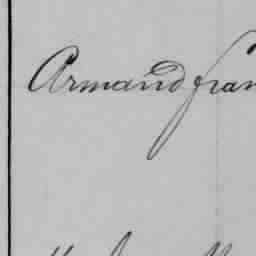 Armand fran